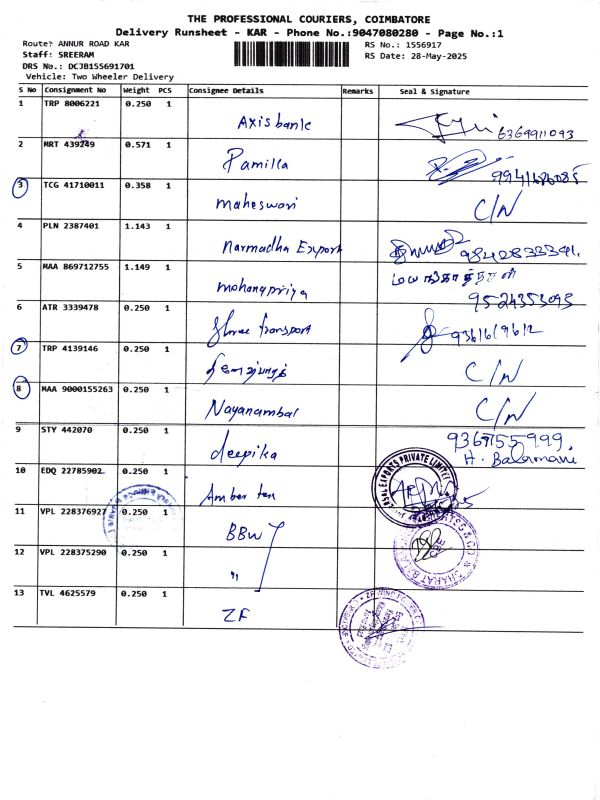 THE PROFESSIONAL COURIERS, COIMBATORE
Delivery Runsheet - KAR - Phone No.:9047080280 - Page No.:1
Route: ANNUR ROAD KAR
RS No.: 1556917
Staff: SREERAM
RS Date: 28-May-2025
DRS No.: DCJB155691701
Vehicle: Two Wheeler Delivery
S No Consignment No Weight PCS Consignee Details Remarks Seal & Signature
1 TRP 8006221 0.250 1 Axis bank 6369911093
2 MRT 439249 0.571 1 Pamilla
3 TCG 41710011 0.358 1 maheswari C/N
4 PLN 2387401 1.143 1 Narmadha Export
5 MAA 869712755 1.149 1 mohanapriya
9524353093
6 ATR 3339478 0.250 1 Shree transport
7 TRP 4139146 0.250 1 C/N
8 MAA 9000155263 0.250 1 Nayanambal C/N
9 STY 442070 0.250 1 deepika
H. Balamani
10 EDQ 22785902 0.250 1 Amber tex
11 VPL 228376927 0.250 1 BBW
12 VPL 228375290 0.250 1 "
13 TVL 4625579 0.250 1 ZF